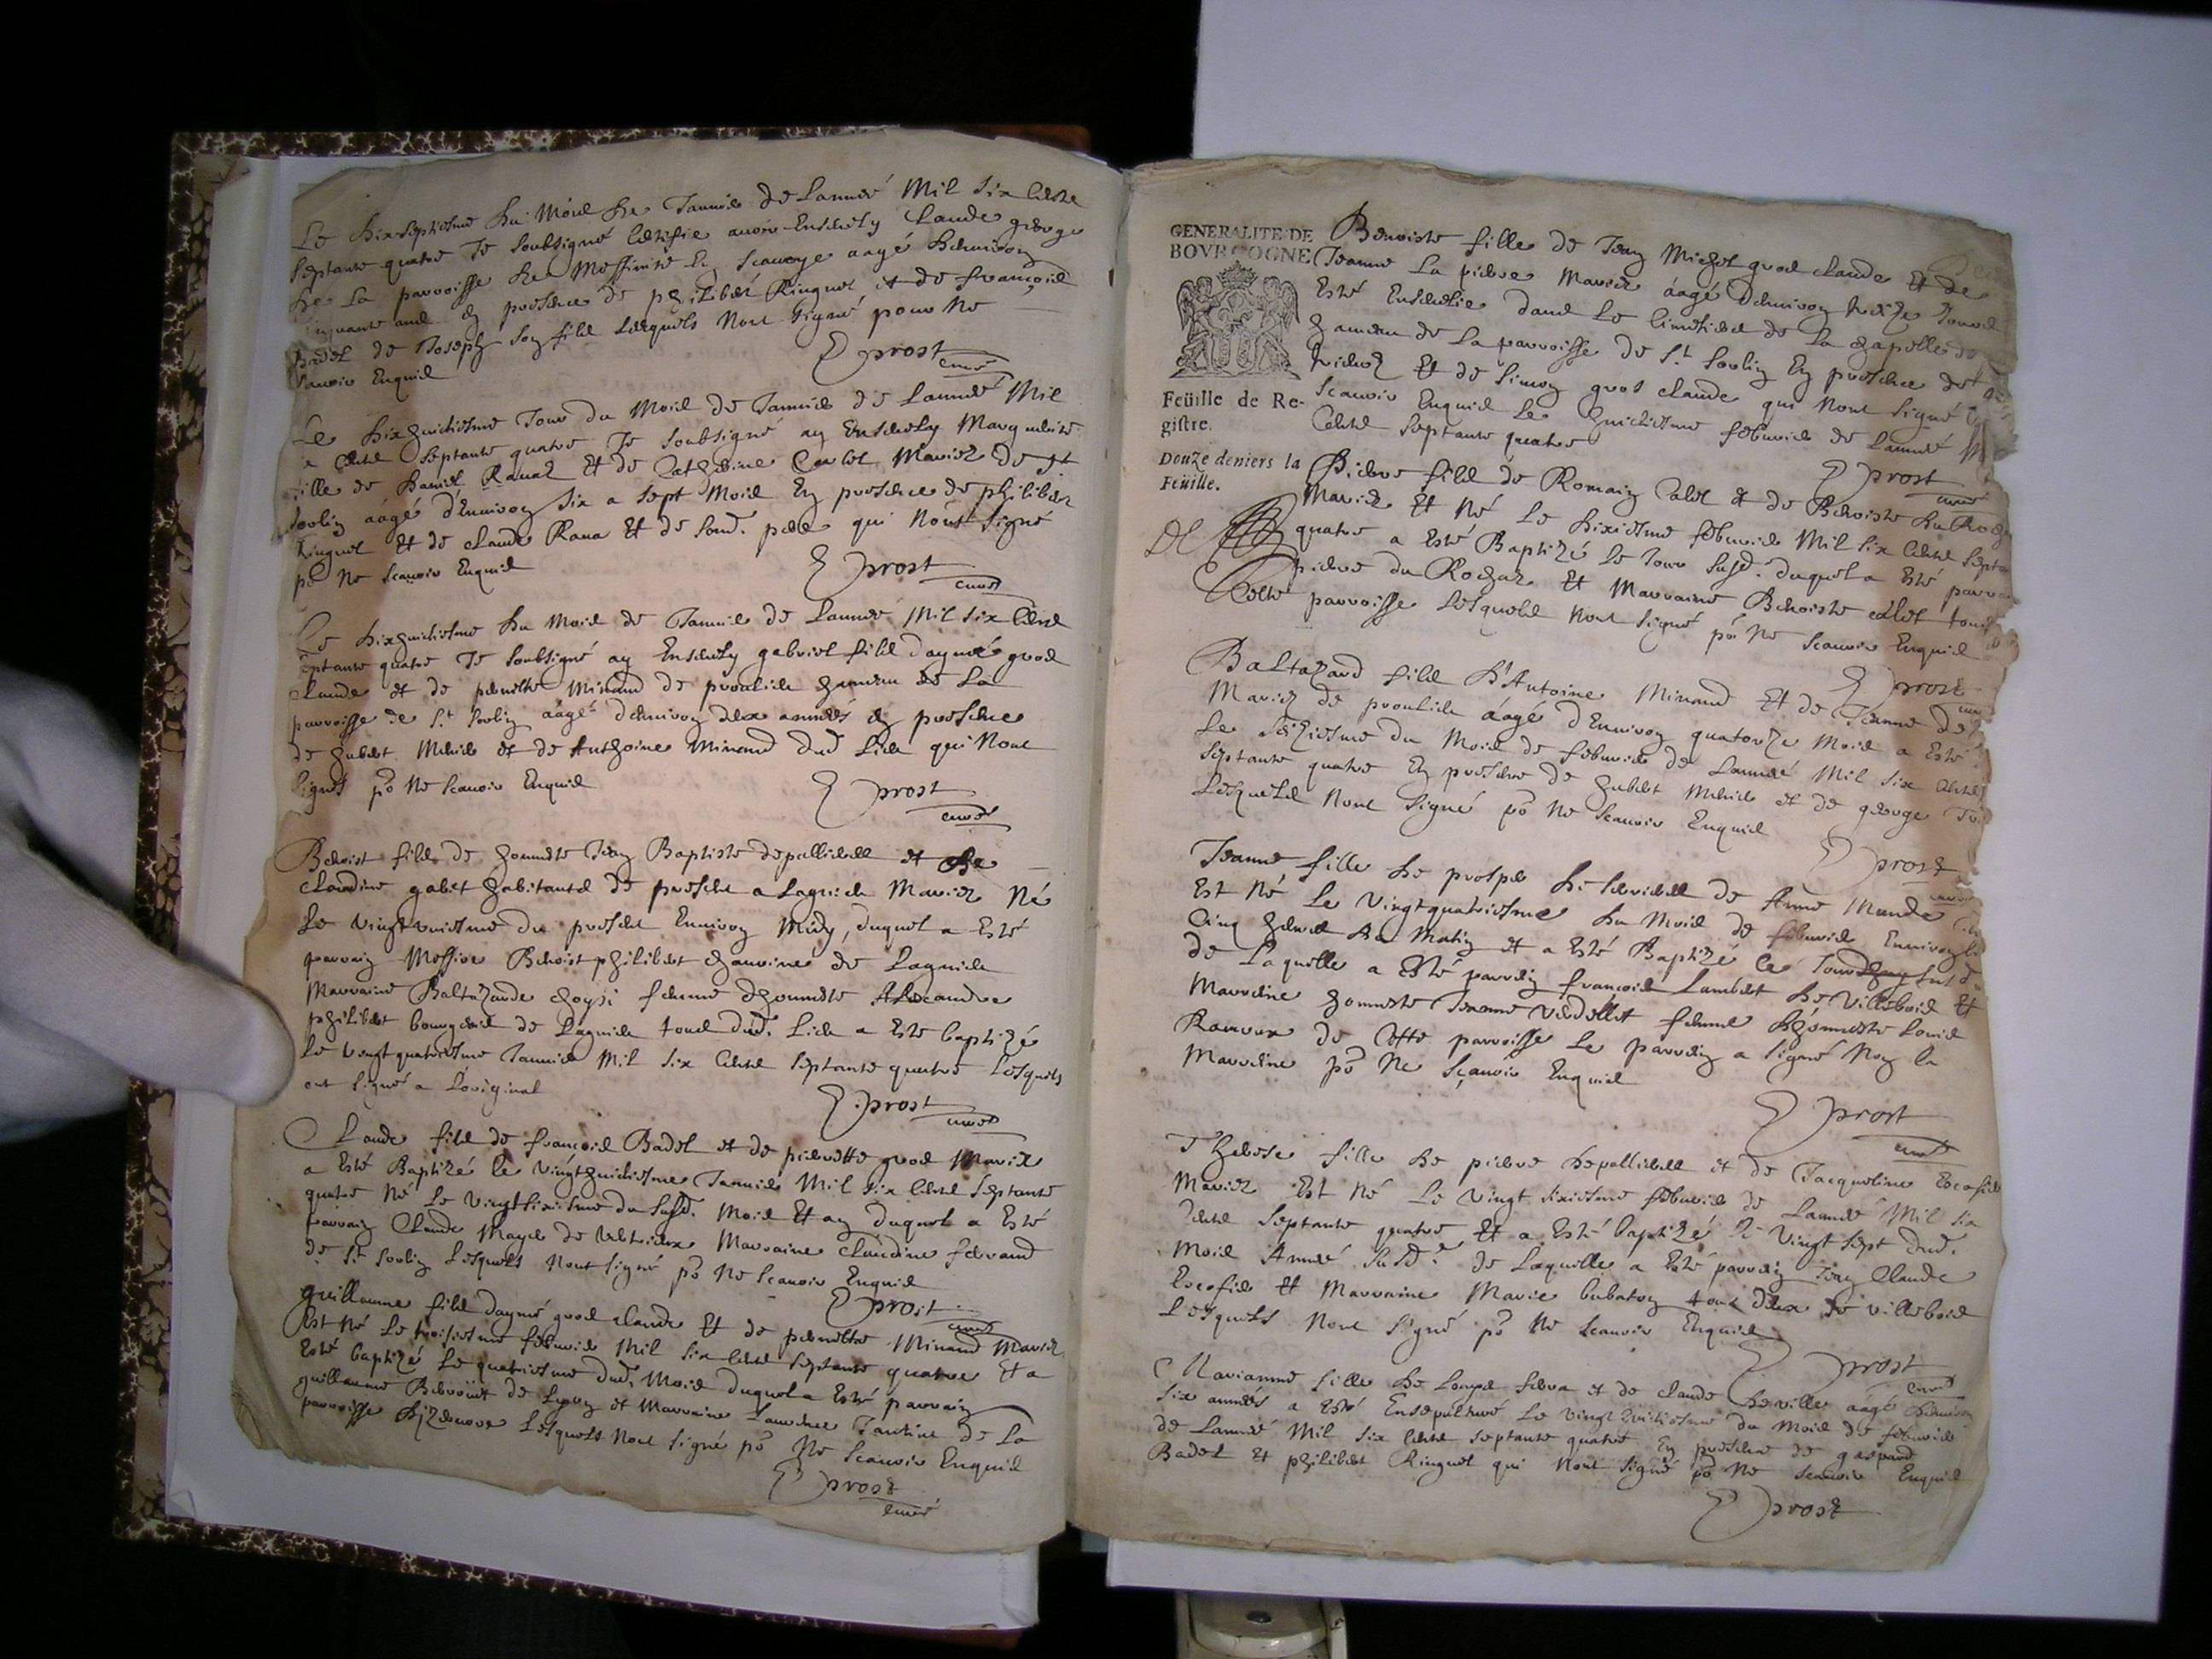 Le dixseptiesme du mois de Januier de Lannée Mil six Cents
septante quatre Je soubsigné Certifie auoir Enseuely Claude george
de La parroisse de en Scauoye aagé denuiron
cinquante ans en presence de philibert Ringuet et de françois
Badel de Joseph son fils Lesquels Nont signé pour Ne
scauoir Enquis
E prost
curé
Le dixhuictiesme Jour du Mois de Januier de Lannée Mil
six Cents septante quatre Je soubsigné ay Enseuely Marguerite
fille de Daniel Rauat Et de Catherine Mariez de St
Sorlin aagé d'Enuiron six a sept Mois En presence de philibert
Ringuet Et de Claude Raua Et de sond. pere qui Nont signé
po Ne scauoir Enquis
E prost
curé
Le dixhuictiesme du Mois de Januier de Lannée Mil six Cents
septante quatre Je soubsigné ay Enseuely gabriel fils daymé gros
Claude et de pernette Minand de proulieu hameau de La
parroisse de St Sorlin aagé denuiron deux années en presence
de hubert et de Anthoine Minand dud Lieu qui Nont
signés po Ne scauoir Enquis
E prost
curé
Benoist fils de honneste Jean Baptiste depelliere et de
Claudine gabet habitants de present a Lagnieu Mariez Né
Le Vingtuniesme du present Enuiron Midy, duquel a Esté
parrain Messire Benoist philibert chanoine de Lagnieu
Marraine Baltazarde femme dhonneste Alexandre
philibert bourgeois de Lagnieu tous dud. Lieu a Esté baptizé
Le Vingtquatriesme Januier Mil six Cents septante quatre Lesquels
ont signé a Loriginal
E prost
curé
Claude fils de françois Badel et de pierrette gros Mariez
a Esté Baptizé le Vingthuictiesme Januier Mil six Cents septante
quatre Né Le Vingtsixiesme du susd. Mois Et an duquel a Esté
parrain Claude de Marraine Claudine ferrand
de St Sorlin Lesquels Nont signé po Ne scauoir Enquis
E prost
curé
guillaume fils daymé gros claude Et de pernette Minand Mariez
Est Né Le troisiesme feburier Mil six Cents septante quatre Et a
Esté baptizé Le quatriesme dud. Mois duquel a Esté parrain
guillaume de Lyon et Marraine Laurence de La
parroisse Lesquels Nont signé po Ne scauoir Enquis
E prost
curé
GENERALITE DE
BOVRGOGNE
Feüille de Re-
gistre.
Douze deniers la
Feüille.
Benoiste fille de Jean Michel gros claude Et de
Jeanne La pierre Mariez aagé denuiron treize Jours
Esté Enseuelie dans Le Cimetiere de La chapelle de
hameau de La parroisse de St Sorlin En presence de
Et de Simon gros claude qui Nont signé
scauoir Enquis Le huictiesme feburier de Lannée
Cents septante quatre
E prost
curé
Pierre fils de Romain Et de Benoiste du
Mariez Et Né Le dixiesme feburier Mil six Cents
quatre a Esté Baptizé Le Jour susd. duquel a Esté
pierre du Rochaz Et Marraine Benoiste tous
Cette parroisse Lesquels Nont signé po Ne scauoir Enquis
E prost
Baltazard fils d'Antoine Minand Et de Jeanne
Mariez de proulieu aagé dEnuiron quatorze Mois a Esté
Le seiziesme du Mois de feburier de Lannée Mil six Cents
septante quatre En presence de hubert et de george
Lesquels Nont signé po Ne scauoir Enquis
E prost
curé
Jeanne fille de prosper de Anne
Est Né Le Vingtquatriesme du Mois de feburier Enuiron
Cinq heures du Matin et a Esté Baptizé le Jour
de Laquelle a Esté parrein françois Lambert de Villebois Et
Marreine honneste Jeanne Verdellet femme dhonneste Louis
de Cette parroisse Le parrein a signé Non la
Marreine po Ne Sçauoir Enquis
E prost
curé
Therese fille de pierre depelliere et de Jacqueline
Mariez Est Né Le Vingt sixiesme feburier de Lannée Mil six
Cents septante quatre Et a Esté baptizé Le Vingt sept dud.
Mois Année susd. de Laquelle a Esté parrein Jean Claude
Et Marraine Marie tous deux de villebois
Lesquels Nont signé po Ne scauoir Enquis
E prost
curé
Marianne fille de et de claude aagé denuiron
six années a Esté Ensepulturé Le vingt du Mois de feburier
de Lannée Mil six Cents septante quatre En presence de gaspard
Badel Et philibert Ringuet qui Nont signé po Ne scauoir Enquis
E prost